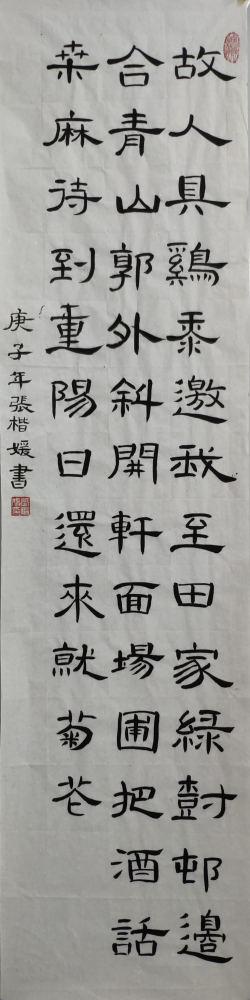 故人具鷄黍邀我至田家綠尌邨邊
合青山郭外斜開軒面場圃把酒話
桒麻待到重陽日還來就菊花
庚子年張楷媛書